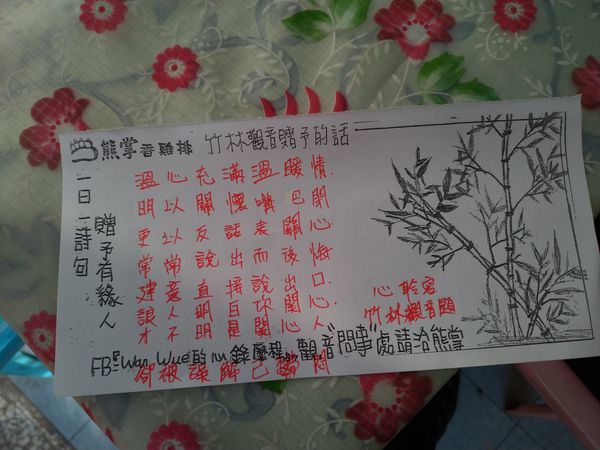 熊掌香雞排 竹林觀音贈予的話
一日一詩句
贈予有緣人
溫心充滿溫暖情.
明以關懷嘴巴閉
更以反話表關心.
常常說出而後悔
建意直接說出口.
讓人明白你關心.
才不明是關心人
卻被誤解已
心
竹林觀音題
FB Wan Wue的心錄歷程 觀音"問事"處請洽熊掌